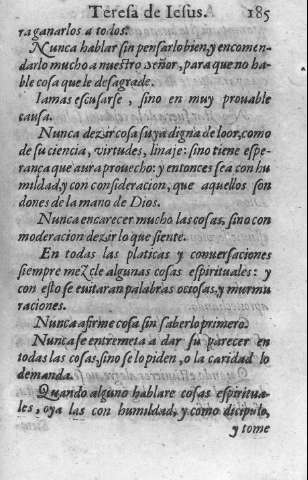 Teresa de Iesus. 185
ra ganarlos a todos.
Nunca hablar sin pensarlo bien, y encomen-
darlo mucho a nuestro Señor, para que no ha-
ble cosa que le desagrade.
Iamas escusarse, sino en muy prouable
causa.
Nunca dezir cosa suya digna de loor, como
de su ciencia, virtudes, linaje: sino tiene espe-
rança que aura prouecho: y entonces sea con hu
mildad, y con consideracion, que aquellos son
dones de la mano de Dios.
Nunca encarecer mucho las cosas, sino con
moderacion dezir lo que siente.
En todas las platicas y conuersaciones
siempre mezcle algunas cosas espirituales: y
con esto se euitaran palabras ociosas, y murmu
raciones.
Nunca afirme cosa sin saberlo primero.
Nunca se entremeta a dar su parecer en
todas las cosas, sino se lo piden, o la caridad lo
demanda.
Quando alguno hablare cosas espiritua-
les, oya las con humildad, y como dicipulo,
y tome